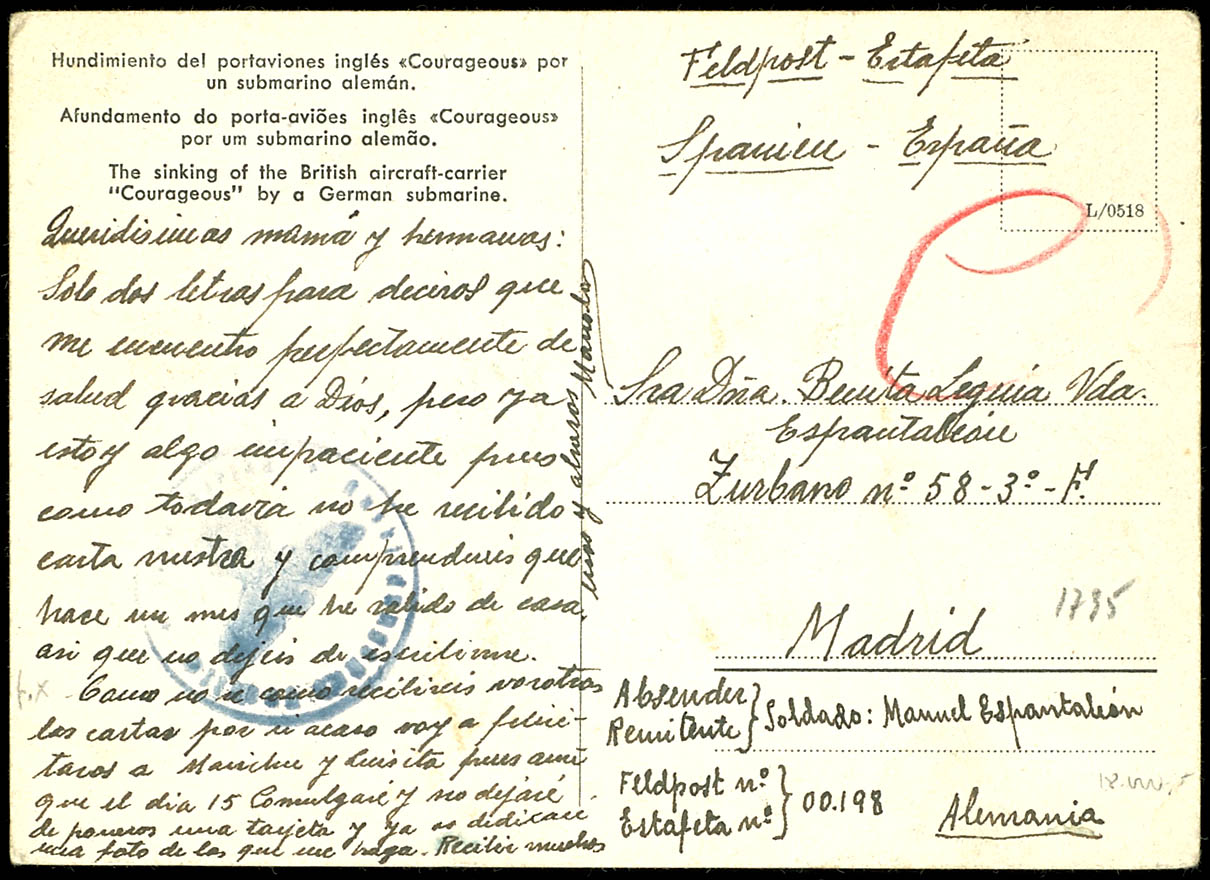 Hundimiento del portaviones inglés «Courageous» por
un submarino alemán.
Afundamento do porta-aviões inglês «Courageous»
por um submarino alemão.
The sinking of the British aircraft-carrier
"Courageous" by a German submarine.
Queridisimas mamá y hermanas:
Solo dos letras para deciros que
me encuentro perfectamente de
salud gracias a Dios, pero ya
estoy algo impaciente pues
como todavia no he recibido
carta vuestra y comprendereis que
hace un mes que he salido de casa
asi que no dejeis de escribirme.
Como no se como recibireis vosotras
las cartas por si acaso voy a felici-
taros a Marichu y Luisita pues aun
que el dia 15 Comulgaré y no dejaré
de poneros una tarjeta y ya os dedicaré
una foto de las que me haga. Recibir muchos
besos y abrazos Manolo
Feldpost - Estafeta
Spanien - España
L/0518
Sra Dña. Benita Leguia Vda.
Espantaleón
Zurbano nº 58-3º-F.
1795
Madrid
Absender
Remitente } Soldado: Manuel Espantaleón
Feldpost nº
Estafeta nº } 00.198
Alemania